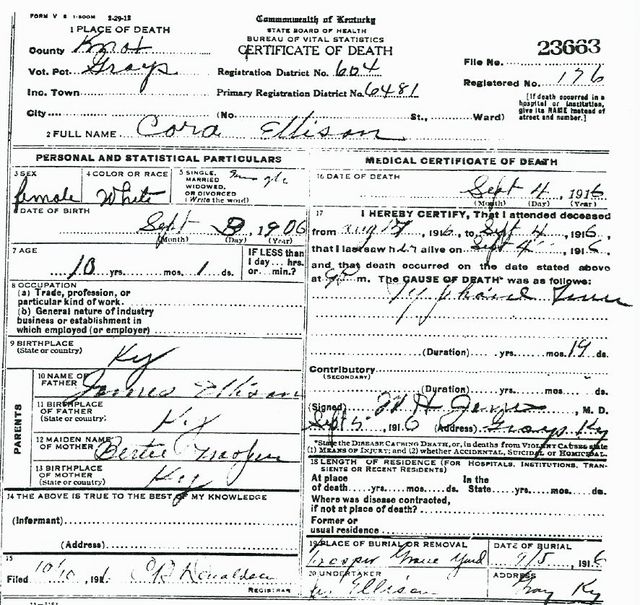 FORM V S 1-500M 2-29-12
Commonwealth of Kentucky
STATE BOARD OF HEALTH
BUREAU OF VITAL STATISTICS
CERTIFICATE OF DEATH
23663
1 PLACE OF DEATH
County Knox
Vot. Pct. Grays
Inc. Town
City (No. St., Ward)
Registration District No. 604
Primary Registration District No. 6481
File No.
Registered No. 176
[If death occurred in a hospital or institution, give its NAME instead of street and number.]
2 FULL NAME Cora Ellison
PERSONAL AND STATISTICAL PARTICULARS
3 SEX female
4 COLOR OR RACE White
5 SINGLE, MARRIED WIDOWED, OR DIVORCED (Write the word) Single
6 DATE OF BIRTH
Sept 3, 1906
(Month) (Day) (Year)
7 AGE
10 yrs. mos. 1 ds.
IF LESS than 1 day.... hrs. or... min.?
8 OCCUPATION
(a) Trade, profession, or particular kind of work.
(b) General nature of industry business or establishment in which employed (or employer)
9 BIRTHPLACE
(State or country) Ky
PARENTS
10 NAME OF FATHER James Ellison
11 BIRTHPLACE OF FATHER (State or country) Ky
12 MAIDEN NAME OF MOTHER Bertie
13 BIRTHPLACE OF MOTHER (State or country) Ky
14 THE ABOVE IS TRUE TO THE BEST OF MY KNOWLEDGE
(Informant)
(Address)
15
Filed 10/10, 191
REGISTRAR
MEDICAL CERTIFICATE OF DEATH
16 DATE OF DEATH
Sept 4, 1916
(Month) (Day) (Year)
17 I HEREBY CERTIFY, That I attended deceased
from Aug 17, 1916, to Sept 4, 1916,
that I last saw her alive on Sept 4, 1916,
and that death occurred on the date stated above
at m. The CAUSE OF DEATH* was as follows:
Typhoid Fever
(Duration) yrs. mos. 19 ds.
Contributory
(SECONDARY)
(Duration) yrs. mos. ds.
(Signed) M. D.
Sept 5, 1916 (Address) Grays Ky
*State the DISEASE CAUSING DEATH, or, in deaths from VIOLENT CAUSES state (1) MEANS OF INJURY; and (2) whether ACCIDENTAL, SUICIDAL or HOMICIDAL.
18 LENGTH OF RESIDENCE (FOR HOSPITALS, INSTITUTIONS, TRANSIENTS OR RECENT RESIDENTS)
At place of death yrs. mos. ds. In the State yrs. mos. ds.
Where was disease contracted, if not at place of death?
Former or usual residence
19 PLACE OF BURIAL OR REMOVAL
Grave Yard
DATE OF BURIAL
9/5, 1916
20 UNDERTAKER
Ellison
ADDRESS
Gray Ky